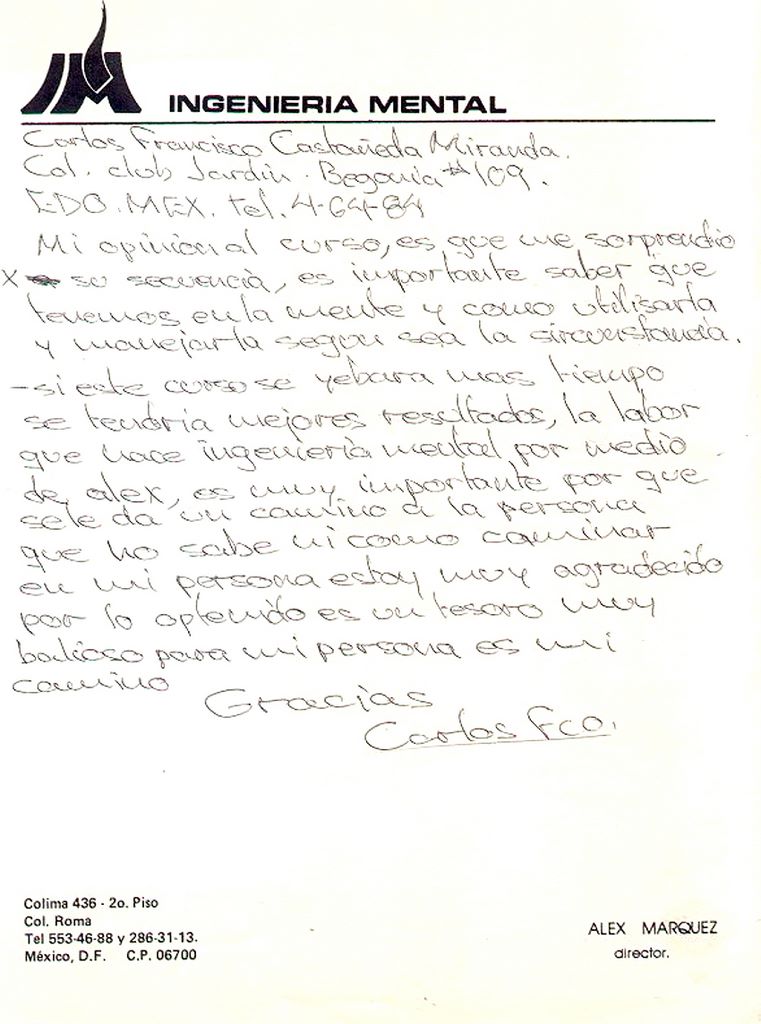 INGENIERIA MENTAL
Carlos Francisco Castañeda Miranda.
Col. club Jardin. Begonia #109.
EDO. MEX. Tel. 4-64-84
Mi opinion al curso, es que me sorprendio
x su secuencia, es importante saber que
tenemos en la mente y como utilisarla
y manejarla segun sea la sircunstancia.
- si este curso se yebara mas tiempo
se tendria mejores resultados, la labor
que hace ingenieria mental por medio
de alex, es muy importante por que
se le da un camino a la persona
que no sabe ni como caminar
en mi persona estoy muy agradecido
por lo optenido es un tesoro muy
balioso para mi persona es mi
camino
Gracias
Carlos Fco.
Colima 436 - 2o. Piso
Col. Roma
Tel 553-46-88 y 286-31-13.
México, D.F. C.P. 06700
ALEX MARQUEZ
director.